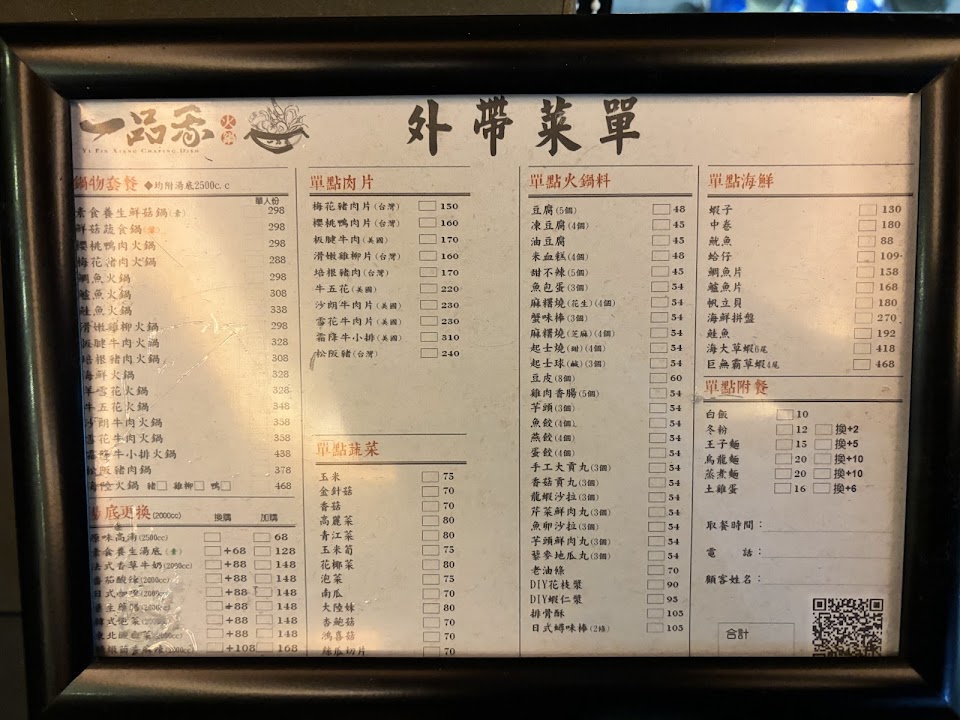 一品香
火鍋
外帶菜單
鍋物套餐 ◆均附湯底2500c.c
單人份
素食養生鮮菇鍋(素) 298
鮮菇蔬食鍋 298
櫻桃鴨肉火鍋 298
梅花豬肉火鍋 288
鯛魚火鍋 298
鱸魚火鍋 308
鮭魚火鍋 338
滑嫩雞柳火鍋 298
板腱牛肉火鍋 328
培根豬肉火鍋 308
海鮮火鍋 328
羊雪花火鍋 328
牛五花火鍋 348
沙朗牛肉火鍋 358
雪花牛肉火鍋 358
霜降牛小排火鍋 438
松阪豬肉鍋 378
海陸火鍋 豬 雞柳 鴨 468
湯底更換(2000cc) 換購 加購
原味高湯(2500cc) 68
素食養生湯底(素) +68 128
法式香草牛奶(2000cc) +88 148
番茄酸辣(2000cc) +88 148
日式咖哩(2000cc) +88 148
養生藥膳(2000cc) +88 148
韓式泡菜(2000cc) +88 148
東北酸白菜(2000cc) +88 148
+108 168
單點肉片
梅花豬肉片(台灣) 150
櫻桃鴨肉片(台灣) 160
板腱牛肉(美國) 170
滑嫩雞柳片(台灣) 160
培根豬肉(台灣) 170
牛五花(美國) 220
沙朗牛肉片(美國) 230
雪花牛肉片(美國) 230
霜降牛小排(美國) 310
松阪豬(台灣) 240
單點蔬菜
玉米 75
金針菇 70
香菇 70
高麗菜 80
青江菜 80
玉米筍 75
花椰菜 80
泡菜 75
南瓜 70
大陸妹 80
杏鮑菇 70
鴻喜菇 70
絲瓜切片 70
單點火鍋料
豆腐(5個) 48
凍豆腐(4個) 45
油豆腐 45
米血糕(4個) 48
甜不辣(5個) 45
魚包蛋(3個) 54
麻糬燒(花生)(4個) 54
蟹味棒(3個) 54
麻糬燒(芝麻)(4個) 54
起士燒(甜)(4個) 54
起士球(鹹)(3個) 54
豆皮(8個) 60
雞肉香腸(5個) 54
芋頭(3個) 54
魚餃(4個) 54
燕餃(4個) 54
蛋餃(4個) 54
手工大貢丸(3個) 54
香菇貢丸(3個) 54
龍蝦沙拉(3個) 54
芹菜鮮肉丸(3個) 54
魚卵沙拉(3個) 54
芋頭鮮肉丸(3個) 54
藜麥地瓜丸(3個) 54
老油條 70
DIY花枝漿 90
DIY蝦仁漿 95
排骨酥 105
日式鱘味棒(2條) 105
單點海鮮
蝦子 130
中卷 180
魷魚 88
蛤仔 109
鯛魚片 158
鱸魚片 168
帆立貝 180
海鮮拼盤 270
鮭魚 192
海大草蝦6尾 418
巨無霸草蝦4尾 468
單點附餐
白飯 10
冬粉 12 換+2
王子麵 15 換+5
烏龍麵 20 換+10
蒸煮麵 20 換+10
土雞蛋 16 換+6
取餐時間：
電　話：
顧客姓名：
合計